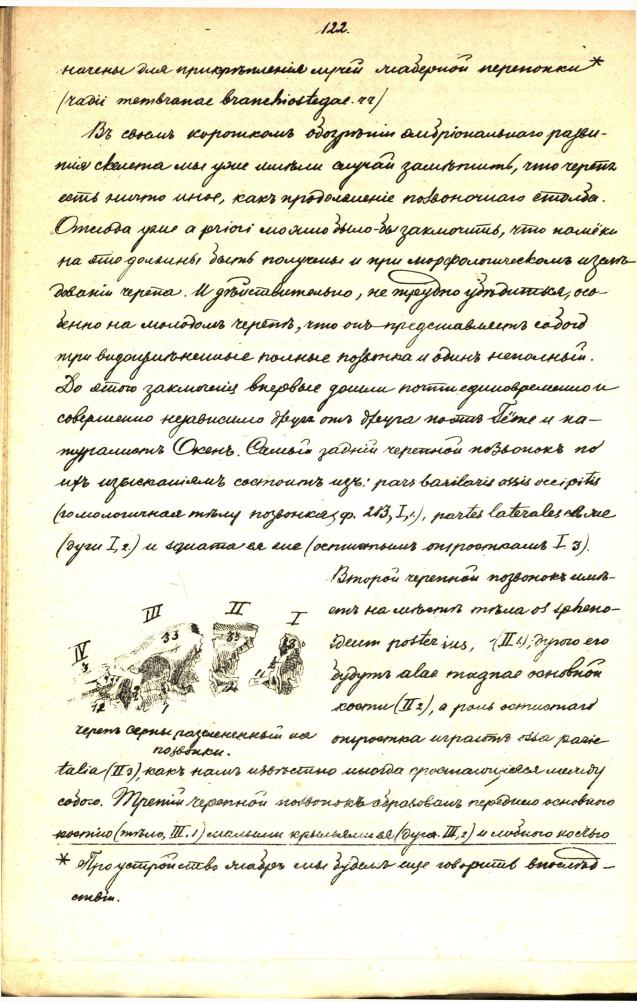 122.
начены для прикрѣпленія лучей жаберной перепонки*
(radii membranae branchiostegae. rr)
Въ своемъ короткомъ обозрѣніи эмбріональнаго разви-
тія скелета мы уже имѣли случай замѣтить, что черепъ
есть ничто иное, какъ продолженіе позвоночнаго столба.
Отсюда уже a priori можно было-бы заключить, что намёки
на это должны быть получены и при морфологическомъ изслѣ-
дованіи черепа. И дѣйствительно, не трудно убѣдиться, осо-
бенно на молодомъ черепѣ, что онъ представляетъ собой
три видоизмѣненные полные позвонка и одинъ неполный.
До этого заключенія впервые дошли почти единовременно и
совершенно независимо другъ отъ друга поэтъ Гёте и на-
туралистъ Окенъ. Самый задній черепной позвонокъ по
ихъ изысканіямъ состоитъ изъ: pars basilaris ossis occipitis
(гомологичная тѣлу позвонка, ф. 213, I, 1), partes laterales ея же
(дуги I, 2) и squama ея же (остистымъ отросткамъ I 3).
Второй черепной позвонокъ имѣ-
етъ на мѣстѣ тѣла os spheno-
ideum posterius, (II 1), дугою его
будутъ alae magnae основной
кости (II 2), а роль остистаго
отростка играютъ ossa parie-
III II I
IV 33 33
3
12 1
черепъ серны расчлененный на
позвонки.
talia (II 3), какъ намъ извѣстно иногда сростающіеся между
собою. Третій черепной позвонокъ образованъ переднею основною
костію (тѣло, III. 1) малыми крыльями ея (дуга III, 2) и лобною костью
* Про устройство жабръ мы будемъ еще говорить впослѣд-
ствіи.